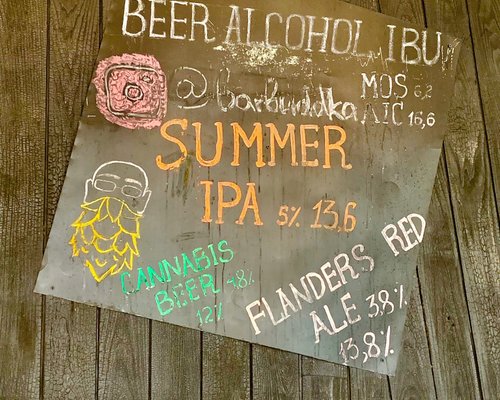 BEER ALCOHOL IBU
MOS 6,2
AIC 16,6
SUMMER
IPA 5% 13,6
CANNABIS
BEER 4,8%
12%
FLANDERS RED
ALE 3,8%
13,8%